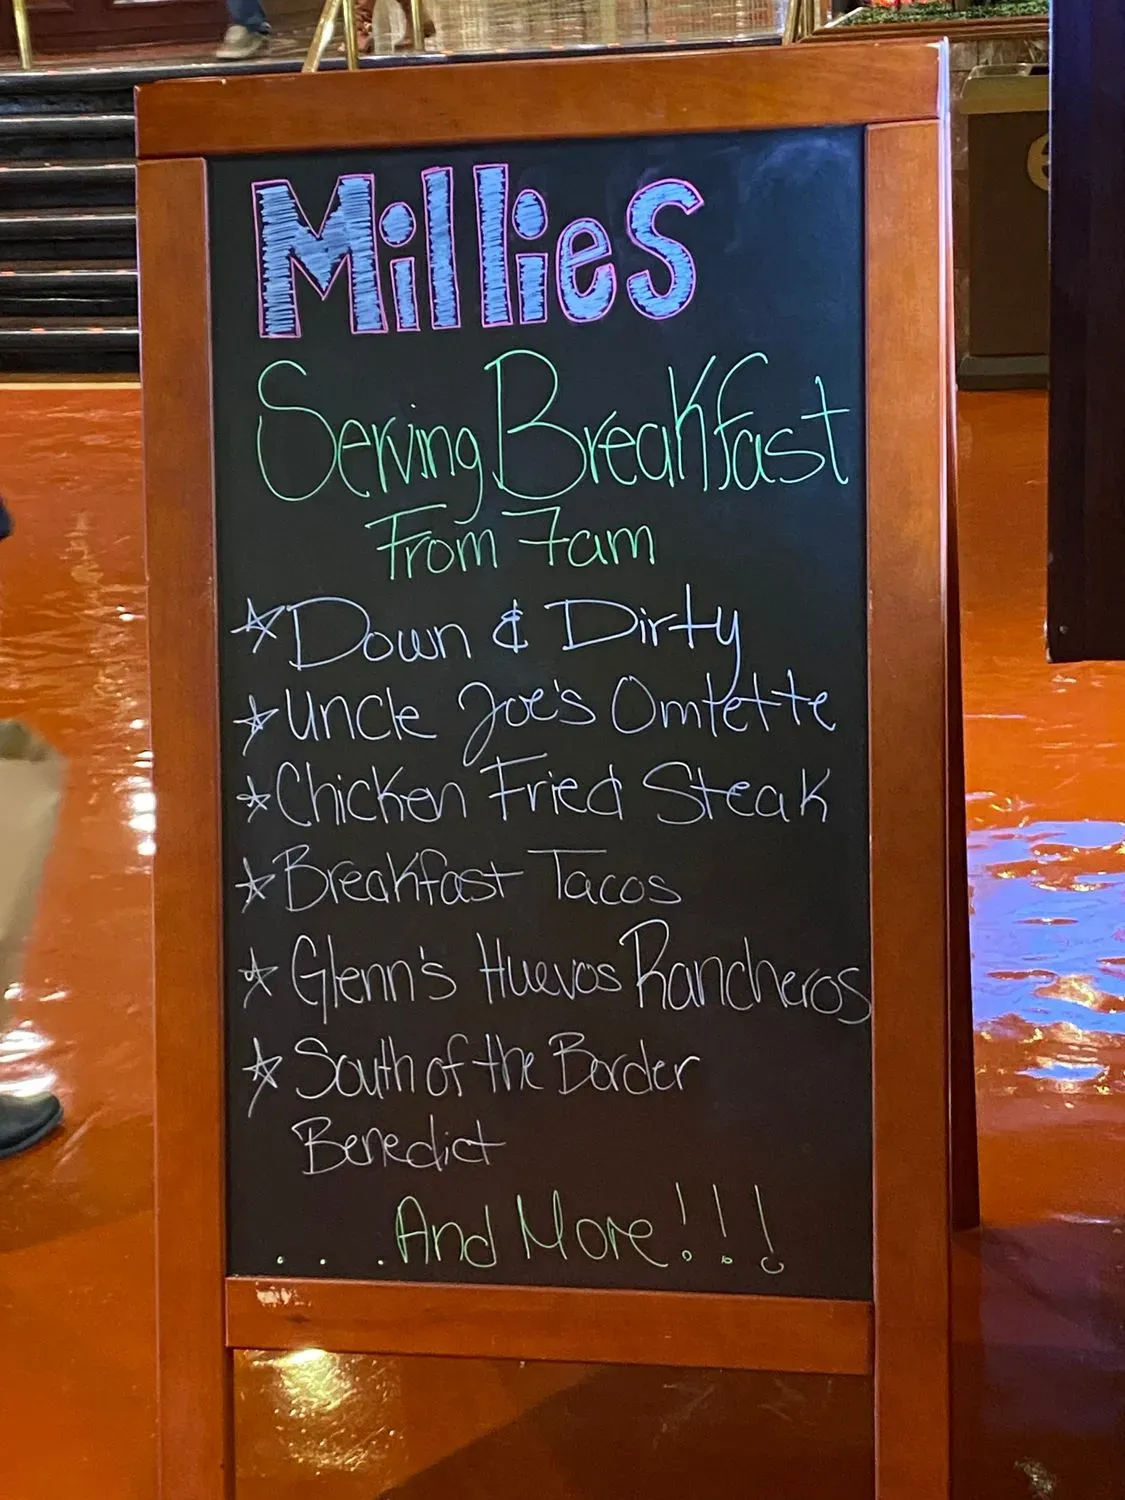 Millies
Serving Breakfast
From 7am
☆ Down & Dirty
☆ Uncle Joe's Omlette
☆ Chicken Fried Steak
☆ Breakfast Tacos
☆ Glenn's Huevos Rancheros
☆ South of the Border
Benedict
. . . And More!!!